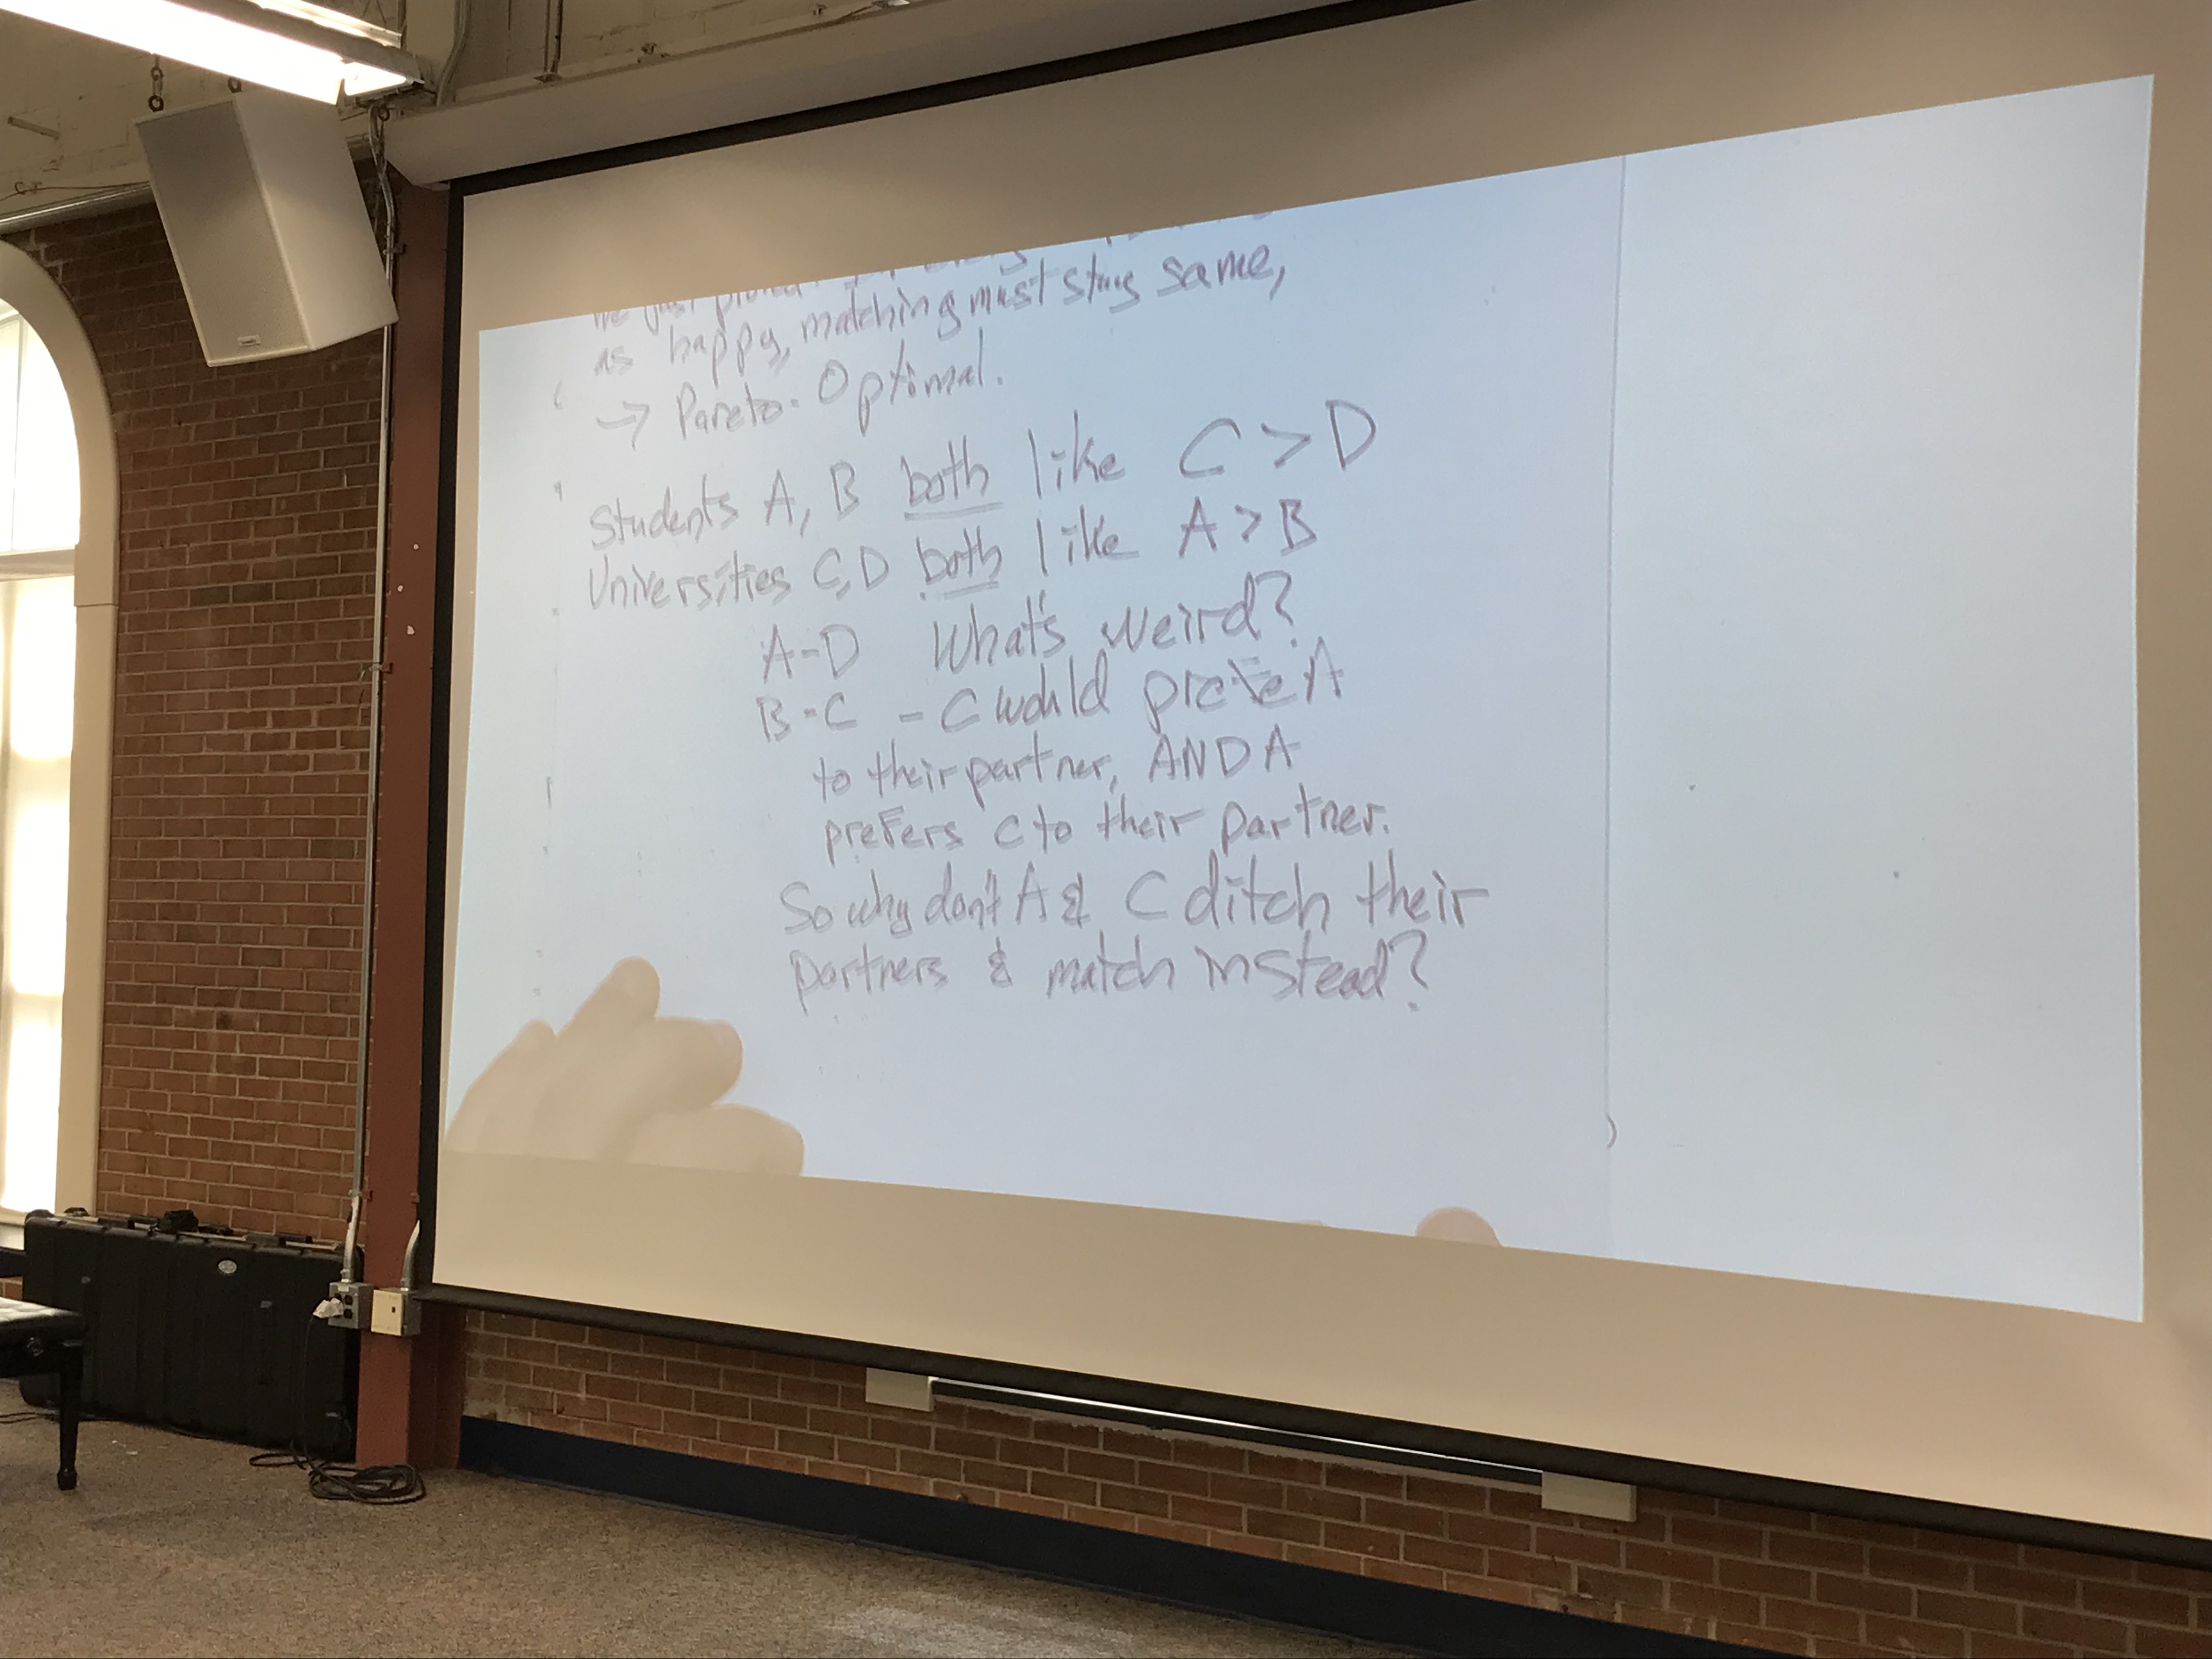 we just
as happy, matching must stay same,
→ Pareto-Optimal.
Students A, B both like C > D
Universities C,D both like A > B
A-D What's weird?
B-C - C would prefer A
to their partner, AND A
prefers C to their partner.
So why don't A & C ditch their
partners & match instead?